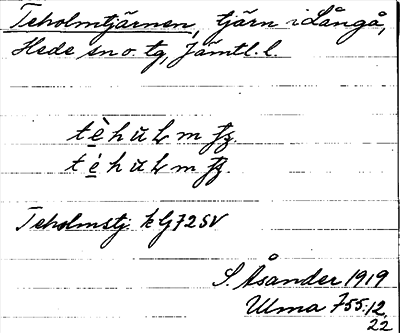 Teholmtjärnen, tjärn i Långå,
Hede sn o. tg, Jämtl. l.
Teholmstj. k Gj 72 SV
S. Åsander 1919
Ulma 755:12,
22